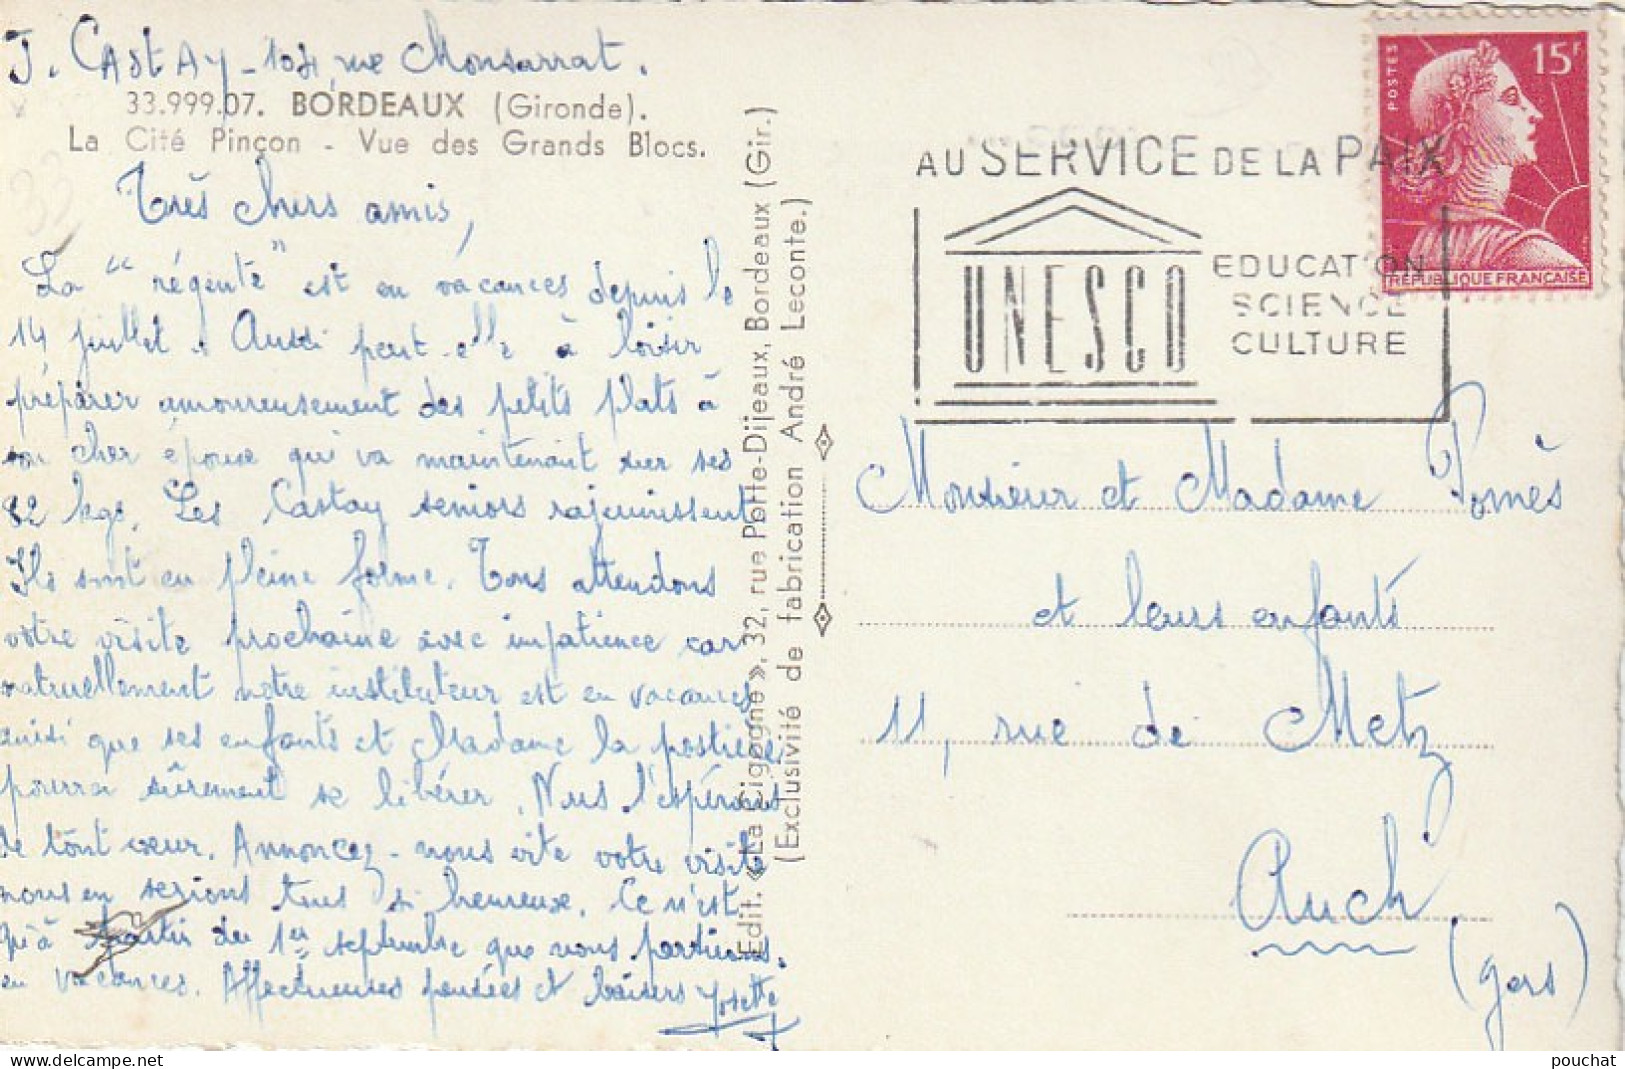 J. CAStAy - 104, rue Monsarrat.
33.999.07. BORDEAUX (Gironde).
La Cité Pinçon - Vue des Grands Blocs.
Très chers amis,
La "régente" est en vacances depuis le
14 juillet. Aussi peut-elle à loisir
préparer amoureusement des petits plats à
son cher épouse qui va maintenant sur ses
82 kgs. Les Castay seniors rajeunissent
Ils sont en pleine forme. Tous attendons
votre visite prochaine avec impatience car
naturellement notre instituteur est en vacances
ainsi que ses enfants et Madame la postière
pourra sûrement se libérer. Nous l'espérons
de tout cœur. Annoncez-nous vite votre visite
nous en serions tous si heureux. Ce n'est
qu'à partir du 1er septembre que nous partirons
en vacances. Affectueuses pensées et baisers Yosette
Edit. «La Cigogne», 32, rue Porte-Dijeaux, Bordeaux (Gir.)
(Exclusivité de fabrication André Leconte.)
POSTES
15F
RÉPUBLIQUE FRANÇAISE
AU SERVICE DE LA PAIX
UNESCO
EDUCATION
SCIENCE
CULTURE
Monsieur et Madame Pomès
et leurs enfants
11, rue de Metz
Auch
(Gers)
pouchat